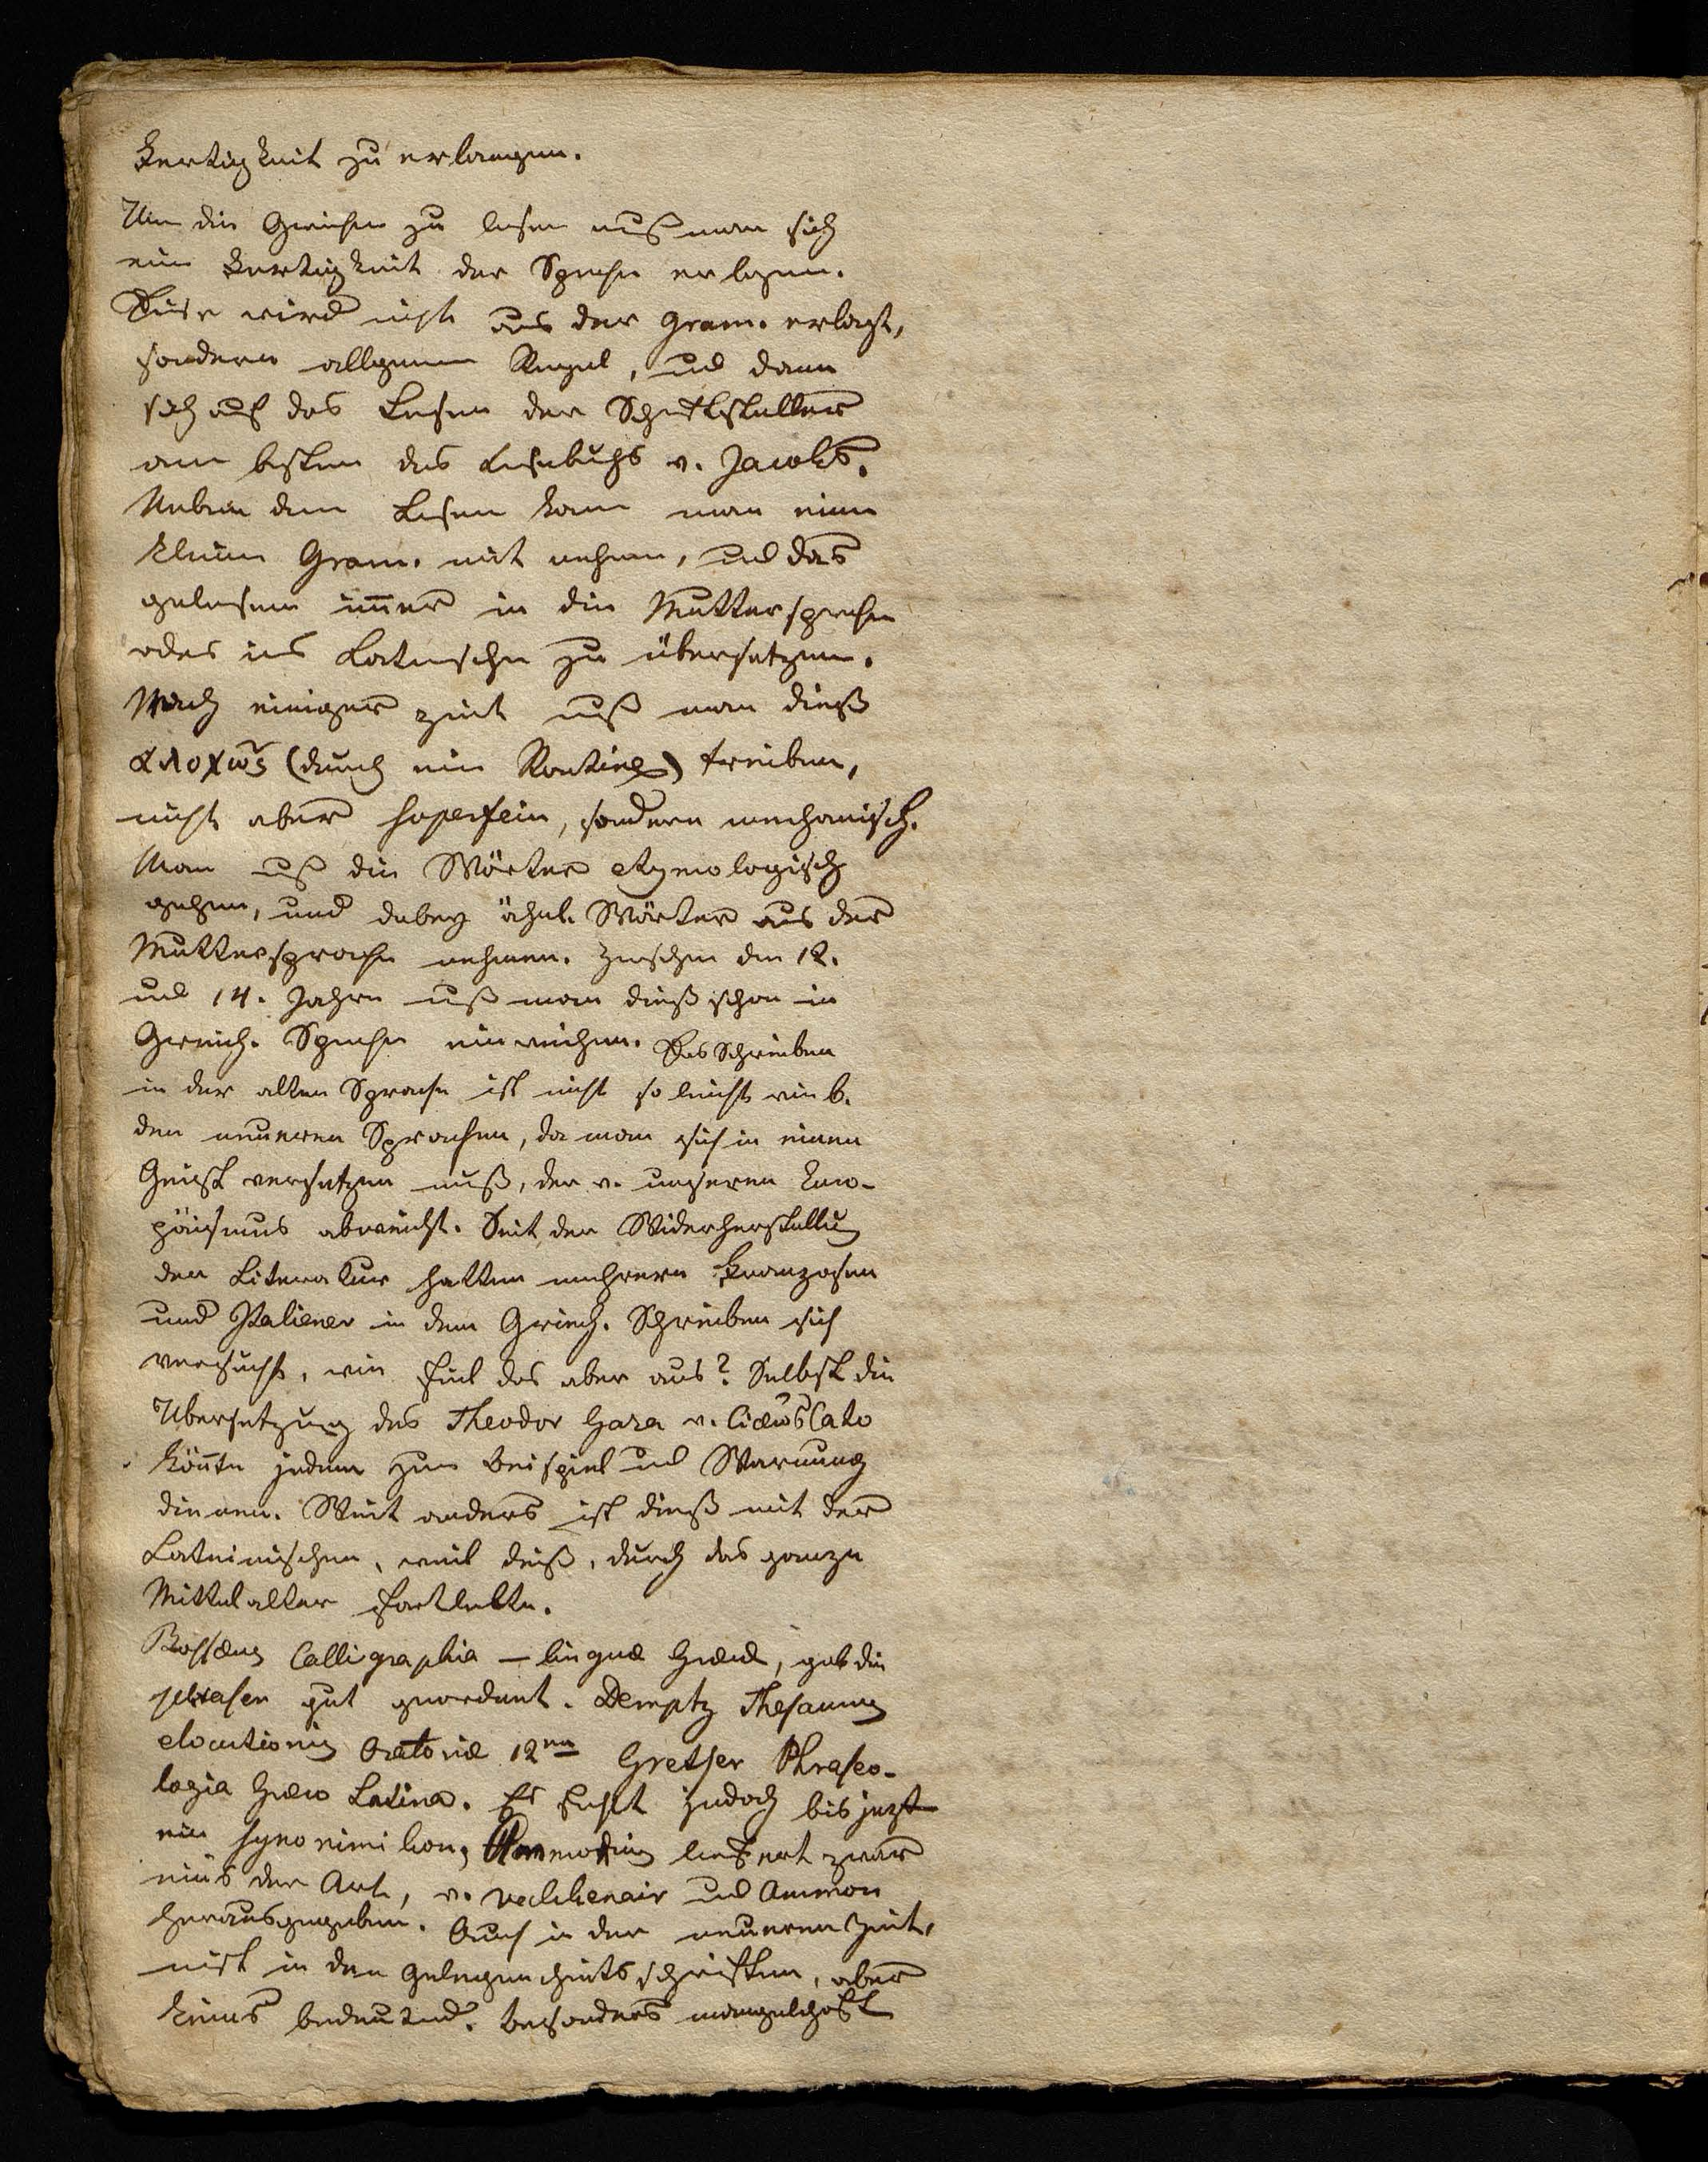 Fertigkeit zu erlangen.
Um die Griechen zu lesen muß man sich
eine Fertigkeit der Sprache erlangen.
Diese wird nicht aus der Gram. erlangt,
sondern allgemeine Regel, und dann
sich auf das Lesen der Schriftsteller
am besten des Lesebuchs v. Jacobs.
Neben dem Lesen kann man eine
kleine Gram. mit nehmen, und das
gelesene immer in die Muttersprache
oder ins Lateinische zu übersetzen.
Nach einiger Zeit muß man dieß
αλογως (durch eine Routine) treiben,
nicht aber superfein, sondern mechanisch.
Man muß die Wörter etymologisch
gehen, und dabey ähnl. Wörter aus der
Muttersprache nehmen. Zwischen den 12.
und 14. Jahre muß man dieß schon in
Griech. Sprache einreichen. Das Schreiben
in der alten Sprache ist nicht so leicht wie b.
den neueren Sprachen, da man sich in einen
Geist versetzen muß, der v. unserem Euro-
päismus abweicht. Seit der Widerherstellung
der Literatur hatten mehrere Franzosen
und Italiener in dem Griech. Schreiben sich
versucht, wie fiel das aber aus? Selbst die
Übersetzung des Theodor Gaza v. Ciceros Cato
könnte jedem zum Beispiel und Warnung
dienen. Weit anders ist dieß mit der
Lateinischen, weil dieß, durch das ganze
Mittelalter fortlebte.
Calligraphia — linguæ Græcæ, gab die
phrasen gut geordnet. Thesaurus
elocutionis Oratoriæ 12mo Gretser Phraseo-
logia Græco Latina. Es fehlt jedoch bis jezt
ein Synonimikon, Ammonius liefert zwar
eins der Art, v. Valckenair und Ammon
herausgegeben. Auch in der neueren Zeit,
meist in den Gelegenheitsschriften, aber
keines bedeutend. Besonders mangelhaft